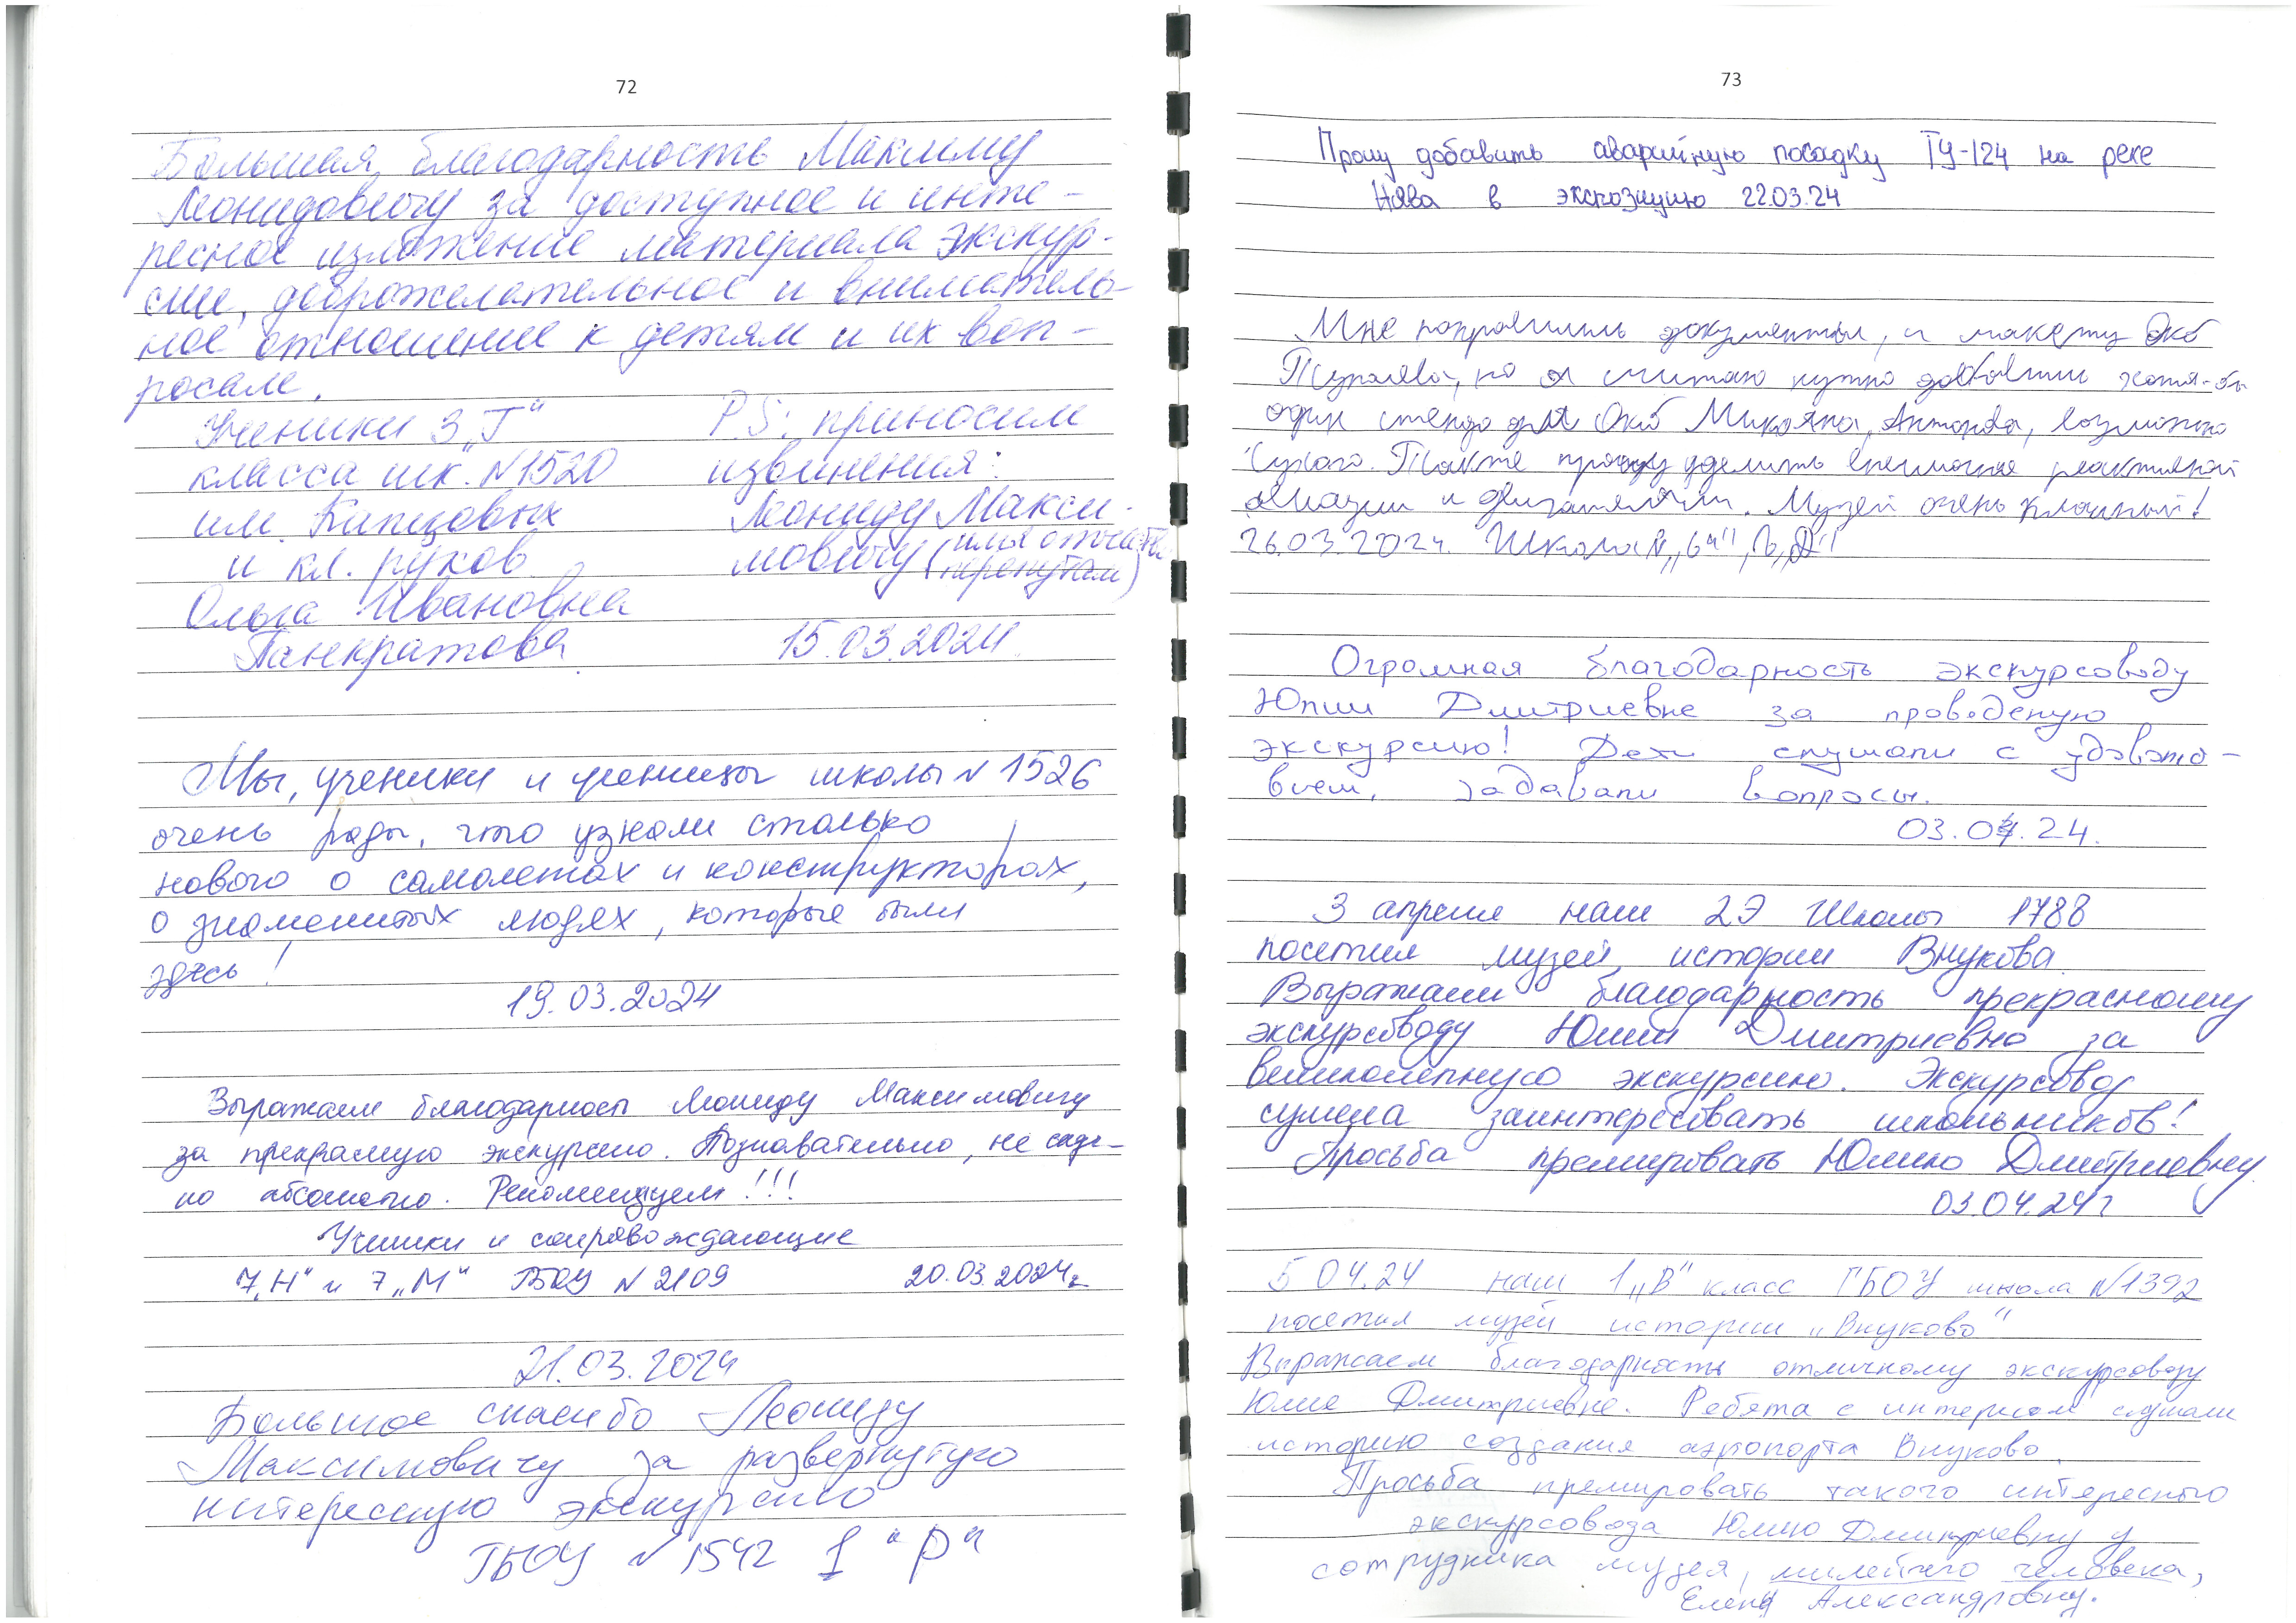 72
Большая благодарность Максиму
Леонидовичу за доступное и инте-
ресное изложение материала экскур-
сии, доброжелательное и вниматель-
ное отношение к детям и их воп-
росам.
Ученики 3 „Г“
класса шк. №1520
им. Капцовых
и кл. руков.
Ольга Ивановна
Панкратова
P.S: приносим
извинения:
Леониду Макси-
мовичу (имя отчество
перепутали)
15.03.2024
Мы, ученики и ученицы школы №1526
очень рады, что узнали столько
нового о самолетах и конструкторах,
о знаменитых людях, которые были
здесь!
19.03.2024
Выражаем благодарность Леониду Максимовичу
за прекрасную экскурсию. Познавательно, не
но абсолютно. Рекомендуем!!!
Ученики и сопровождающие
7„Н“ и 7„М“ ГБОУ №2109 20.03.2024г
21.03.2024
Большое спасибо Леониду
Максимовичу за развернутую
интересную экскурсию
ГБОУ №1542 1 "Р"
73
Прошу добавить аварийную посадку ТУ-124 на реке
Нява в экспозицию 22.03.24
Мне понравились документы, и макеты Окб
Туполева, но я считаю нужно добавить хотя-бы
один стенд для Окб Микояна, Антонова, возможно
Сухого. Также прошу уделить внимание реактивной
авиации и двигателям. Музей очень классный!
26.03.2024. Школа
Огромная благодарность экскурсоводу
Юлии Дмитриевне за проведеную
экскурсию! Дети слушали с удовольст-
вием, задавали вопросы.
03.04.24.
3 апреля наш 2Э школы 1788
посетил музей истории Внукова.
Выражаем благодарность прекрасному
экскурсоводу Юлии Дмитриевне за
великолепную экскурсию. Экскурсовод
сумела заинтересовать школьников!
Просьба премировать Юлию Дмитриевну.
03.04.24г
5 04.24 наш 1„В“ класс ГБОУ школа №1392
посетил музей истории „Внуково“
Выражаем благодарность отличному экскурсоводу
Юлие Дмитриевне. Ребята с интересом слушали
историю создания аэропорта Внуково.
Просьба премировать такого интересного
экскурсовода Юлию Дмитриевну у
сотрудника музея, милейшего человека,
Елену Александровну.